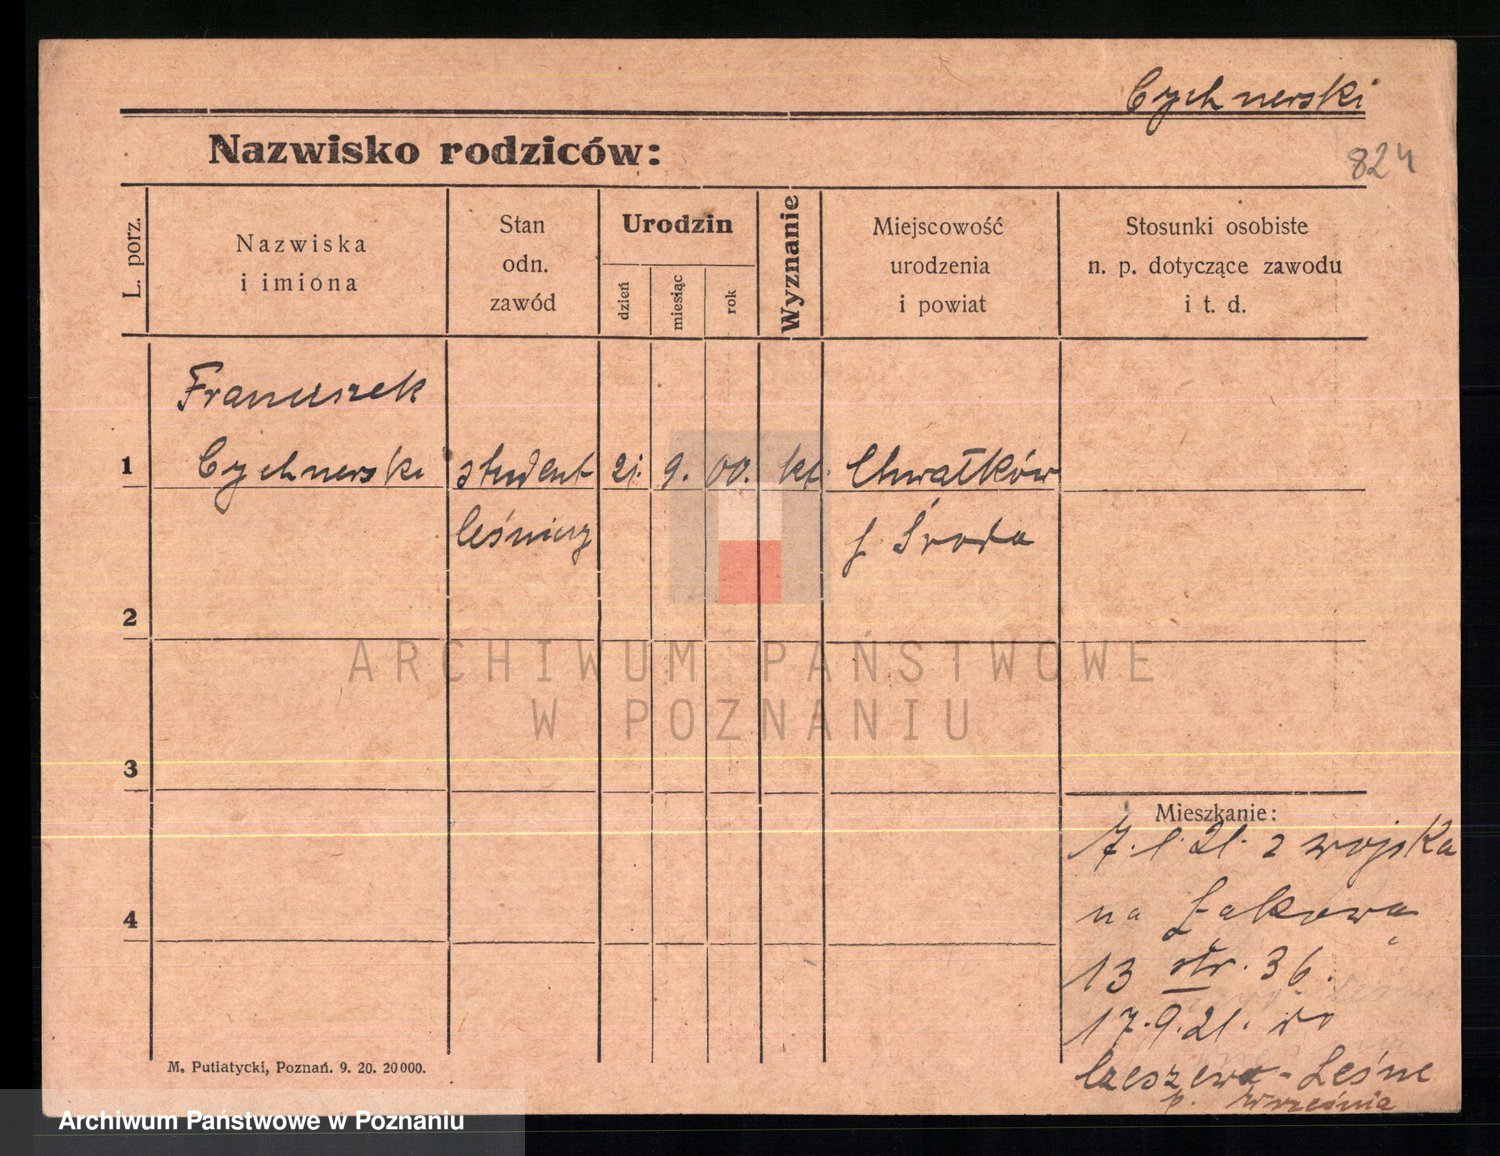 Cychnerski
Nazwisko rodziców:
824
L. porz.
Nazwiska
i imiona
Stan
odn.
zawód
Urodzin
dzień
miesiąc
rok
Wyznanie
Miejscowość
urodzenia
i powiat
Stosunki osobiste
n. p. dotyczące zawodu
i t. d.
Franciszek
1 Cychnerski student 21. 9. 00. kt. Chwałków
leśniczy Środa
2
ARCHIWUM PAŃSTWOWE
W POZNANIU
3
Mieszkanie:
7.1.21. z wojska
na Łąkowa
4
13 str. 36.
17.9.21. do
Czeszewo-Leśne
p. Września
M. Putiatycki, Poznań. 9. 20. 20000.
Archiwum Państwowe w Poznaniu